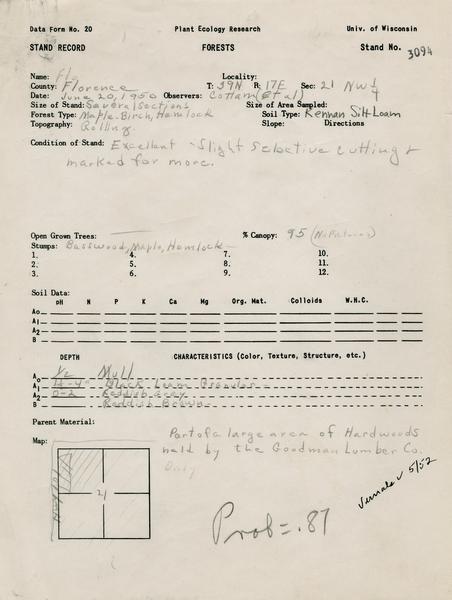 Data Form No. 20 Plant Ecology Research Univ. of Wisconsin
STAND RECORD FORESTS Stand No. 3094
Name: Fl Locality:
County: Florence T: 39N R: 17E Sec: 21 NW 1/4
Date: June 20, 1950 Observers: Cottam (et al)
Size of Stand: Several Sections Size of Area Sampled:
Forest Type: Maple-Birch, Hemlock Soil Type: Kennan Silt Loam
Topography: Rolling Slope: Directions
Condition of Stand: Excellent - Slight Selective cutting &
marked for more.
Open Grown Trees: % Canopy: 95
Stumps: Basswood, Maple, Hemlock
1. 4. 7. 10.
2. 5. 8. 11.
3. 6. 9. 12.
Soil Data:
pH N P K Ca Mg Org. Mat. Colloids W.H.C.
Ao
A1
A2
B
DEPTH CHARACTERISTICS (Color, Texture, Structure, etc.)
Ao 1/2 Mull
A1 Black Loam Granular
A2 0-2 Reddish Gray
B Reddish Brown
Parent Material:
Part of a large area of Hardwoods
held by the Goodman Lumber Co.
Only
Map:
21
Vernals ✓ 5/52
Prob = .87